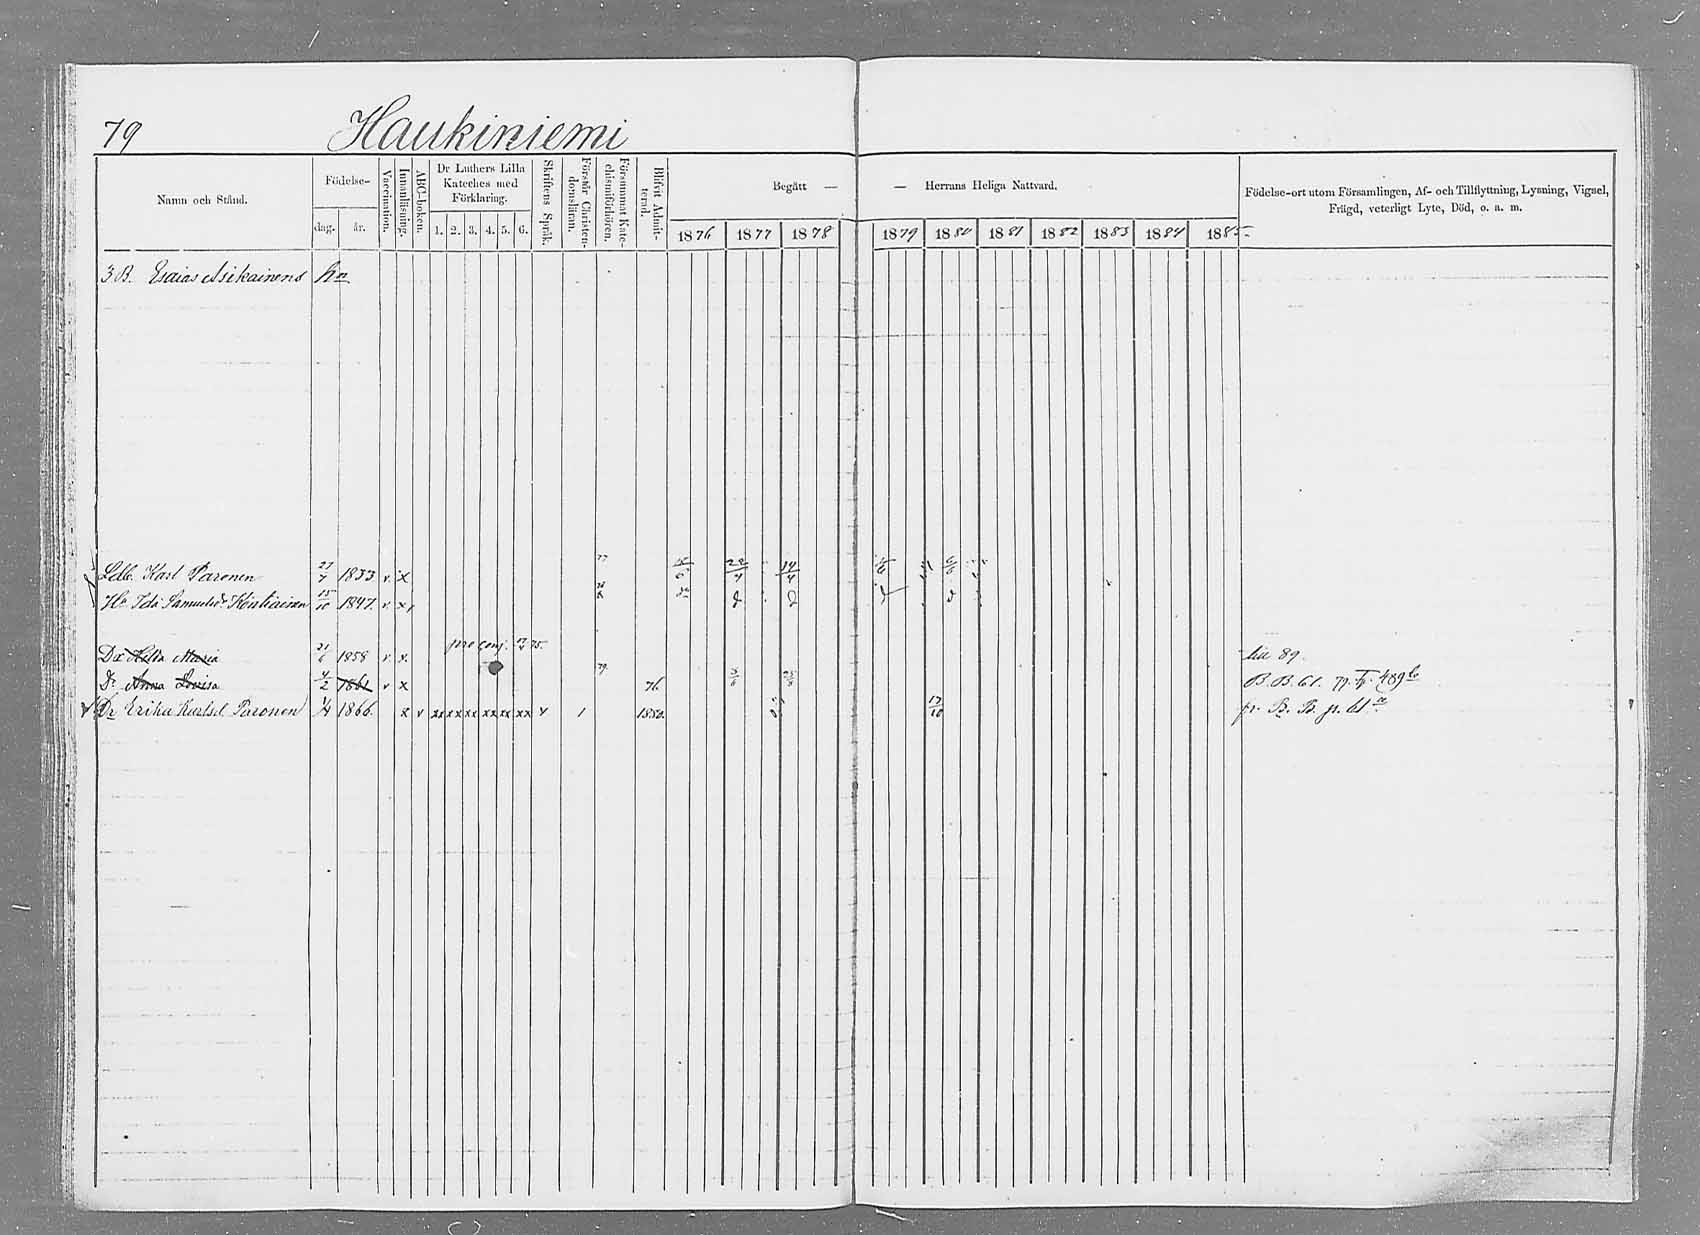 79 Haukiniemi
Namn och Stånd.
Födelse-
dag. år.
Vaccination.
Innanläsning.
ABC-boken.
Dr Luthers Lilla
Kateches med
Förklaring.
1. 2. 3. 4. 5. 6.
Skriftens Språk.
Förstår Christen-
domsläran.
Försummat Kate-
chismiförhören.
Blifvit Admit-
terad.
Begått — — Herrans Heliga Nattvard.
1876 1877 1878 1879 1880 1881 1882 1883 1884 1885.
Födelse-ort utom Församlingen, Af- och Tillflyttning, Lysning, Vigsel,
Frägd, veterligt Lyte, Död, o. a. m.
3 B. Esaias Asikainens hn
77
Karl Paronen 27/7 1833 v. x 22/4 14/4
Hu Ida Samuelsdr 15/10 1847. v. x 2 2 2 2
pro conj. 75.
Dr Maria 21/6 1858 v x. 89.
79
Dr Anna Lovisa 4/2 1861 v x 76 B. B. 61. 489
Dr Erika Karlsd. Paronen 1/4 1866. x v xx xx xx xx xx xx v 1 1880. 17/10 fr. B. B. p. 61